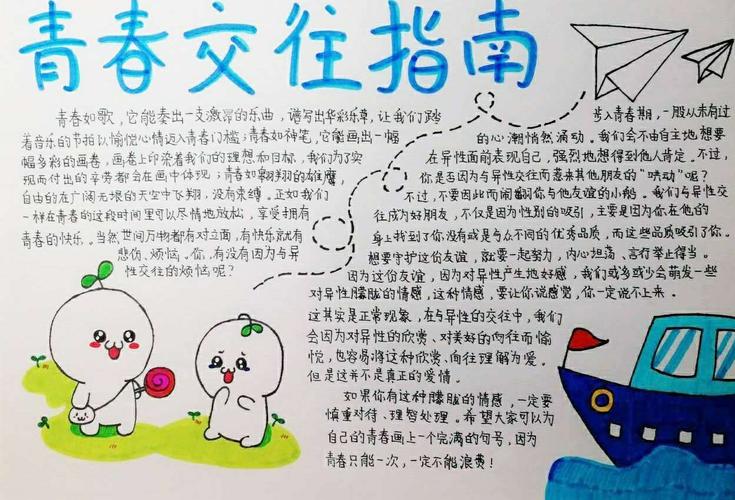 青春交往指南
青春如歌，它能奏出一支激昂的乐曲，谱写出华彩乐章，让我们踏
着音乐的节拍以愉悦心情迈入青春门槛；青春如神笔，它能画出一幅
幅多彩的画卷，画卷上印染着我们的理想和目标，我们为了实
现而付出的辛劳都会在画中体现；青春如翱翔的雄鹰，
自由的在广阔无垠的天空中飞翔，没有束缚。正如我们
一样在青春的这段时间里可以尽情地放松，享受拥有
青春的快乐。当然世间万物都有对立面，有快乐就有
悲伤、烦恼。你，有没有因为与异
性交往的烦恼呢？
步入青春期，一股从未有过
的心潮悄然涌动。我们会不由自主地想要
在异性面前表现自己，强烈地想得到他人肯定。不过，
你是否因为与异性交往而惹来其他朋友的“哄动”呢？
不过，不要因此而闹翻你与他友谊的小船。我们与异性交
往成为好朋友，不仅是因为性别的吸引，主要是因为你在他的
身上找到了你没有或是与众不同的优秀品质，而这些品质吸引了你。
想要守护这份友谊，就要一起努力，内心坦荡、言行举止得当。
因为这份友谊，因为对异性产生地好感，我们或多或少会萌发一些
对异性朦胧的情感，这种情感，要让你说感觉，你一定说不上来。
这其实是正常现象，在与异性的交往中，我们
会因为对异性的欣赏、对美好的向往而愉
悦，也容易将这种欣赏、向往理解为爱。
但是这并不是真正的爱情。
如果你有这种朦胧的情感，一定要
慎重对待、理智处理。希望大家可以为
自己的青春画上一个完满的句号，因为
青春只能一次，一定不能浪费！